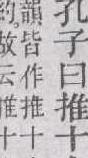 孔子曰推十
韻皆作推十
約。故云推十